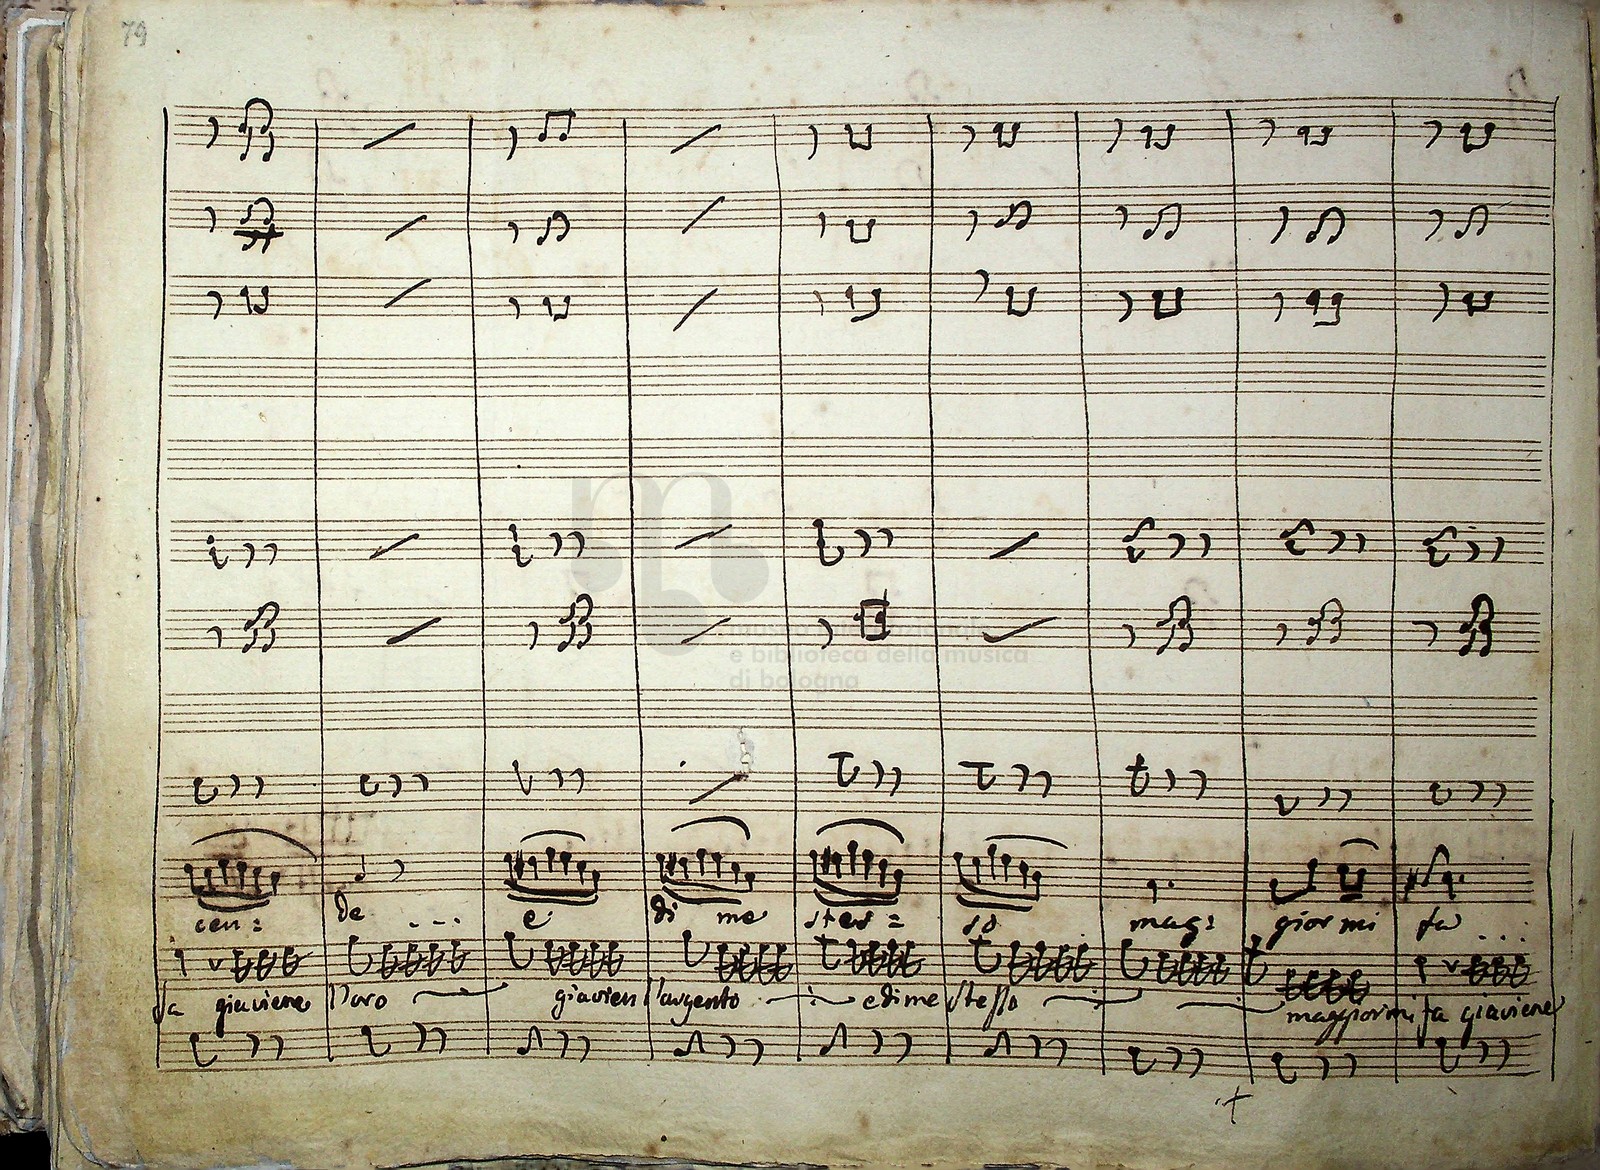 79
museo internazionale
e biblioteca della musica
di bologna
cen: de e di me stes= so mag: gior mi fa
fa giaviene l'oro giavien l'argento e di me stesso maggior mi fa giaviene